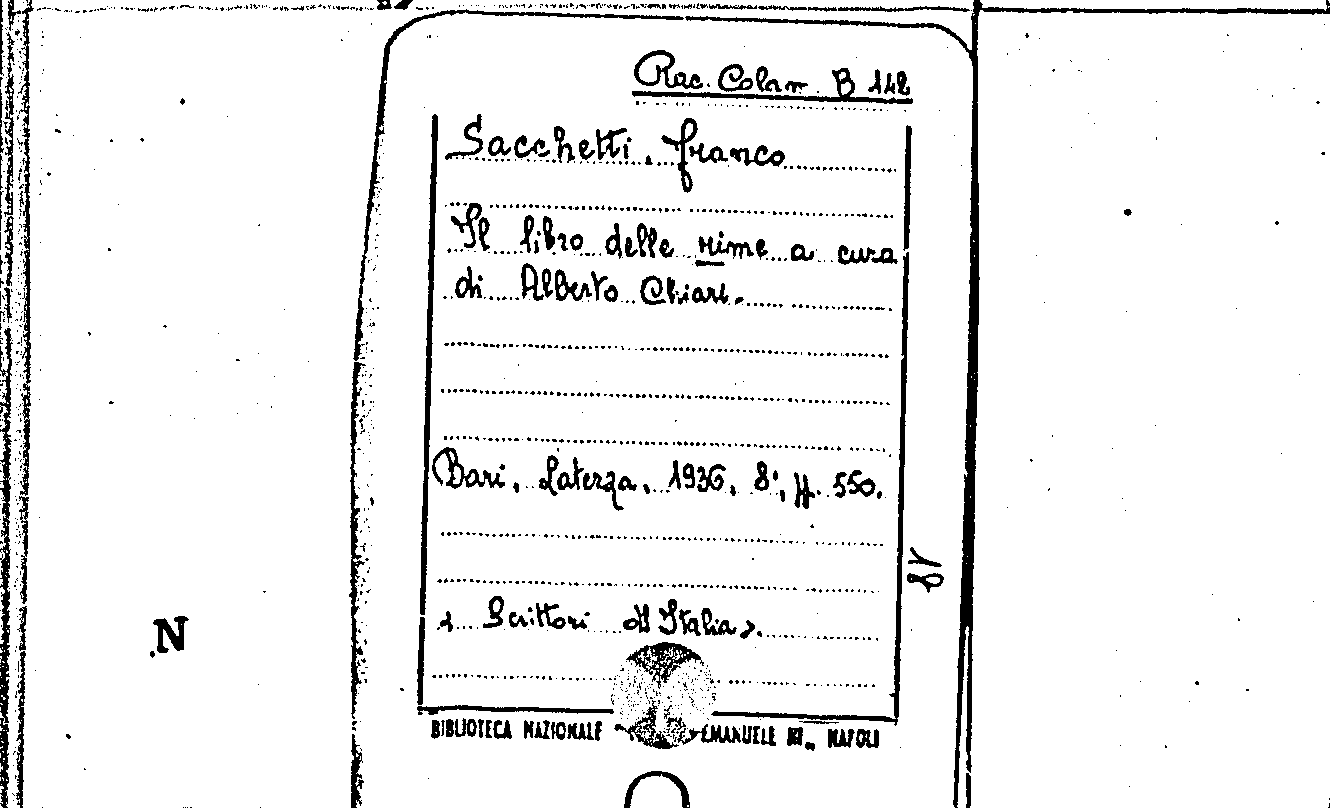 Rac. Colam. B 142
Sacchetti, Franco
Il libro delle rime a cura
di Alberto Chiari.
Bari, Laterza, 1936, 8°, pp. 550.
18
« Scrittori d'Italia ».
N
BIBLIOTECA NAZIONALE EMANUELE III„ NAPOLI